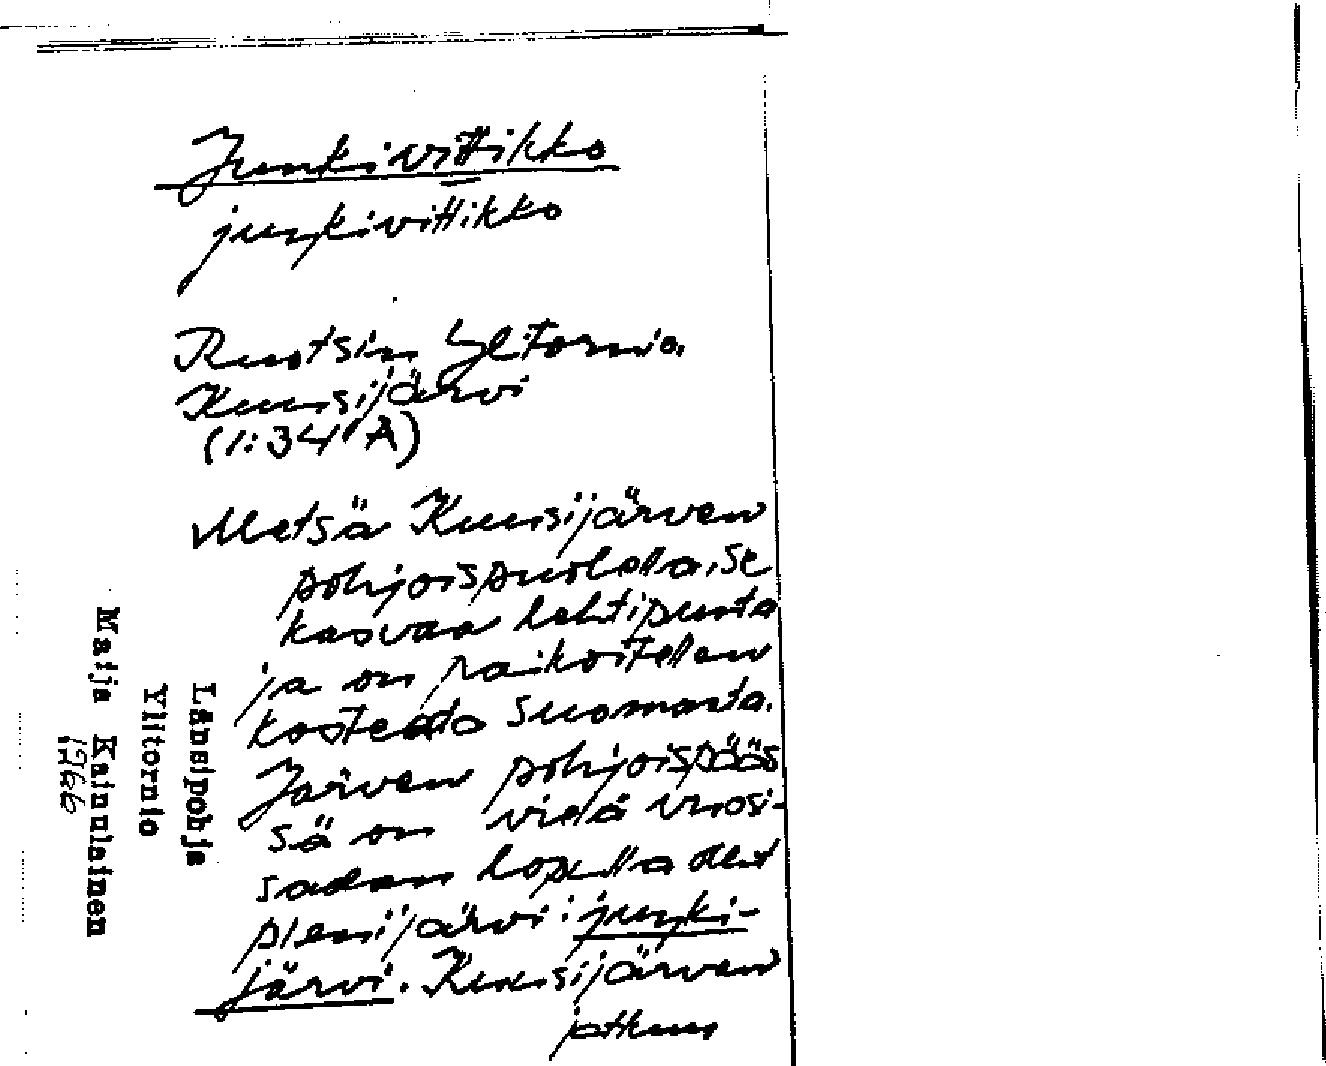 Junkivittikko
juŋkivittikko
Ruotsin Ylitornio.
Kuusijärvi
(1:34 A)
Metsä Kuusijärven
pohjoispuolella, se
kasvaa lehtipuuta
ja on paikoitellen
kosteata suomaata.
Järven pohjoispääs
sä on vielä vuosi-
sadan lopulla ollut
pieni järvi: juŋki-
järvi. Kuusijärven
jatkuu
Länsipohja
Ylitornio
Maija Kainulainen
1966